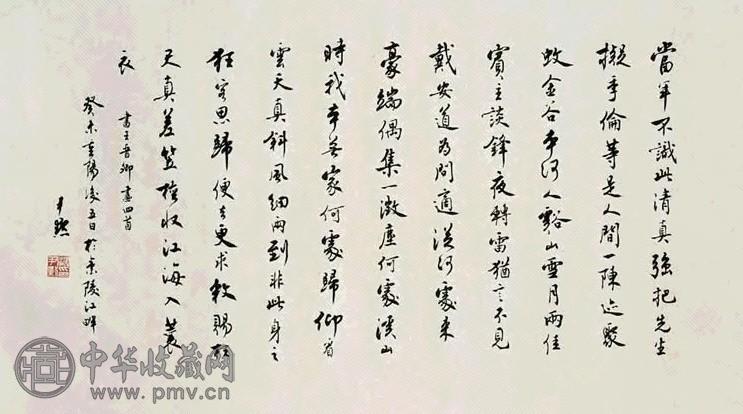 當年不識此清真強把先生
擬季倫等是人間一陳迹聚
蚊金谷本何人谿山雪月兩佳
賓主談鋒夜轉雷猶言不見
戴安道為問適從何處來
豪端偶集一微塵何處溪山
時我本無家何處歸仰看
雲天真斜風細雨到非此身
狂客思歸便去更求敕賜
天真笠旋收江海入蓑
衣 書王晉卿畫四首
癸未重陽後五日於嘉陵江畔
尹默
中华收藏网
www.pmv.cn